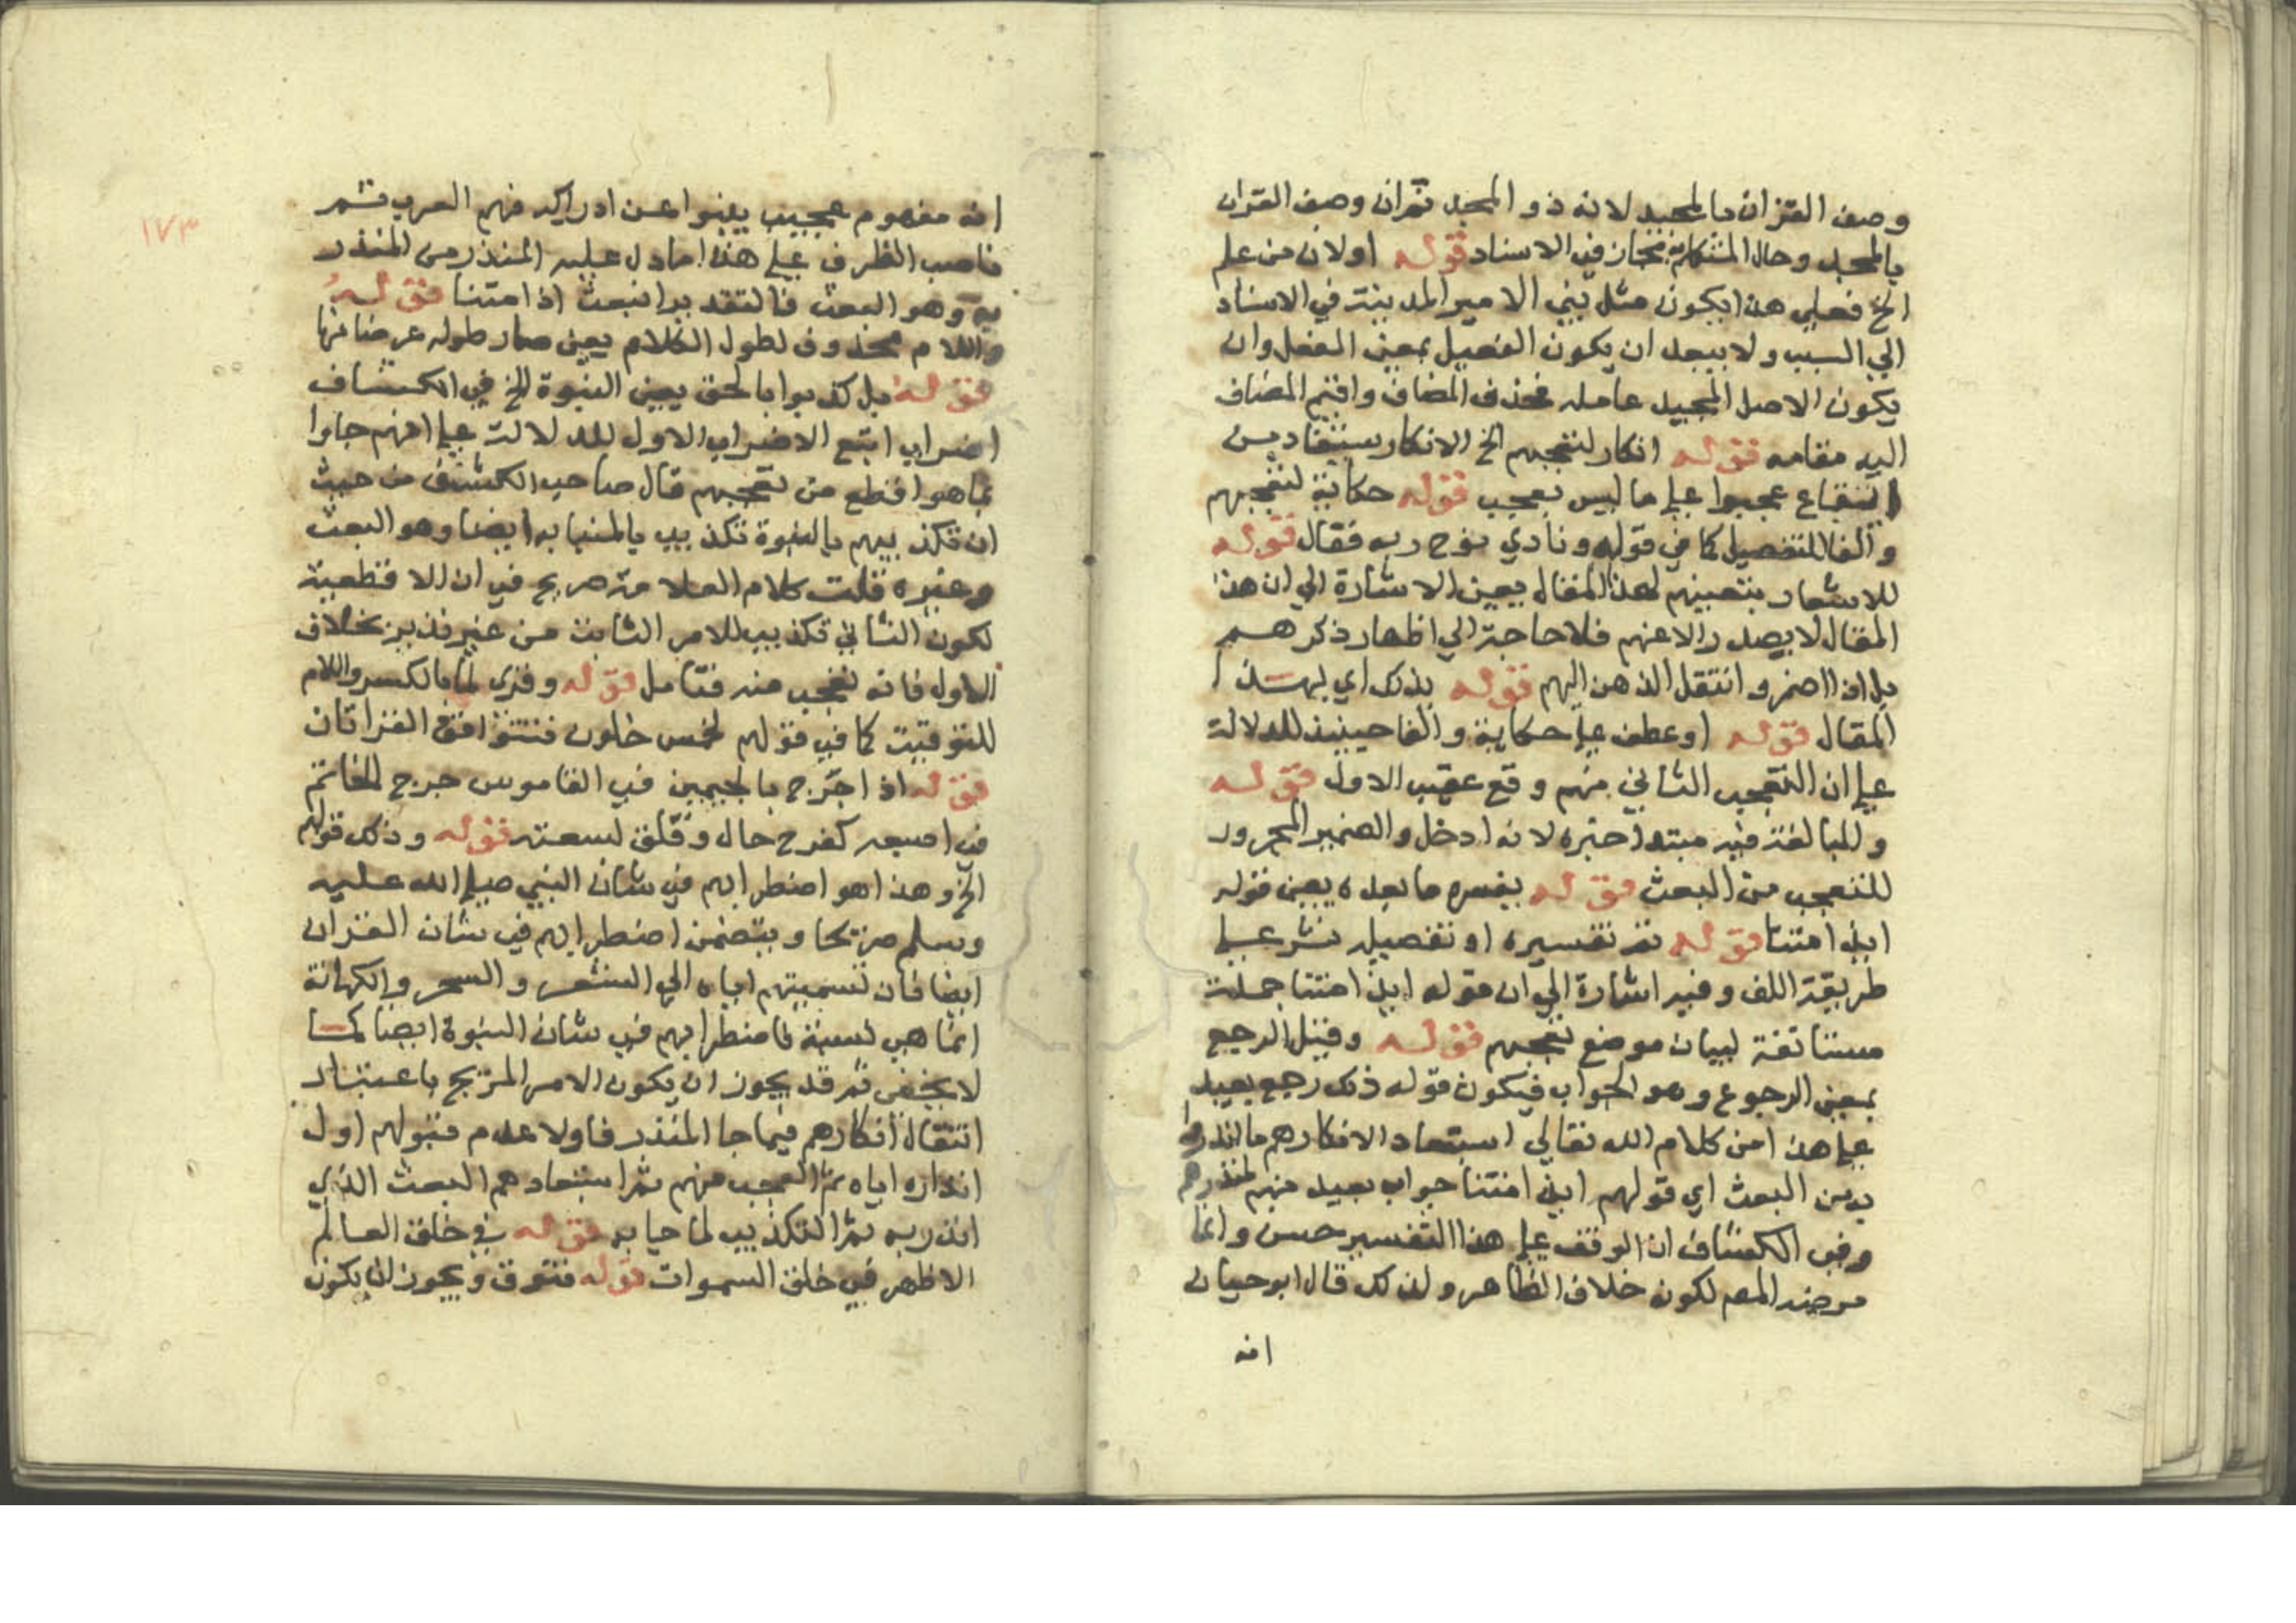 وصف القران بالمجيد لانه ذو المجد ثم ان وصف القران
بالمجيد وحال المتكلم به مجاز في الاسناد قوله او لان من علم
الخ فعلي هذا يكون مثل بني الامير المدينة في الاسناد
الي السبب ولا يبعد ان يكون الفعيل بمعني المفعل وان
يكون الاصل المجيد عامله فحذف المضاف واقيم المضاف
اليه مقامه قوله انكار لتعجبهم الخ الانكار يستفاد من
ايقاع عجبوا علي ما ليس بعجب قوله حكاية لتعجبهم
والفا للتفصيل كما في قوله ونادي نوح ربه فقال قوله
للاشعار بتعينهم لهذا المقال يعني الاشارة الي ان هذا
المقال لا يصدر الا عنهم فلا حاجة الي اظهار ذكرهم
بل اذا اضمروا انتقل الذهن اليهم قوله بذلك اي لهذا
المقال قوله او عطف علي حكاية والفا حينيذ للدلالة
علي ان التعجب الثاني منهم وقع عقيب الاول قوله
وللمبالغة فيه مبتدا خبره لانه ادخل والضمير المجرور
للتعجب من البعث قوله يفسره ما بعده يعني قوله
ايذا متنا قوله ثم تفسيره او تفصيله نشر علي
طريقة اللف وفيه اشارة الي ان قوله ايذا متنا جملة
مستانفة لبيان موضع تعجبهم قوله وقيل الرجع
بمعني الرجوع وهو الجواب فيكون قوله ذلك رجع بعيد
علي هذا من كلام الله تعالي استبعاد الانكارهم ما انذروا
به من البعث اي قولهم ايذا متنا جواب بعيد منهم لمنذرهم
وفي الكشاف ان الوقف علي هذا التفسير حسن وانما
مرضه المص لكونه خلاف الظاهر ولذلك قال ابو حيان
انه
١٧٣
انه مفهوم عجيب ينبوا عن ادراكه فهم العرب ثم
ناصب الظرف علي هذا ما دل عليه المنذر من المنذر
به وهو البعث فالتقدير انبعث اذا متنا قوله
واللام محذوف لطول الكلام يعني صار طوله عوضا عنها
قوله بل كذبوا بالحق يعني النبوة الخ في الكشاف
اضراب اتبع الاضراب الاول للدلالة علي انهم جاوا
بما هو افظع من تعجبهم قال صاحب الكشف من حيث
ان تكذيبهم بالنبوة تكذيب بالمنبا به ايضا وهو البعث
وغيره قلت كلام العلامة صريح في ان الافظعية
لكون الثاني تكذيب للامر الثابت من غير تدبر بخلاف
الاول فانه تعجب منه فتامل قوله وقري لما بالكسر واللام
للتوقيت كما في قولهم لخمس خلون فتتوافق القراتان
قوله اذا جرج بالجيمين في القاموس جرج الخاتم
في اصبعه كفرح جال وقلق لسعته قوله وذلك قولهم
الخ وهذا هو اضطرابهم في شان النبي صلي الله عليه
وسلم صريحا ويتضمن اضطرابهم في شان القران
ايضا فان تسميتهم اياه الي الشعر والسحر والكهانة
انما هي لسبة لاضطرابهم في شان النبوة ايضا كما
لا يخفي ثم قد يجوز ان يكون الامر المريج باعتبار
انتقال افكارهم فيما جا المنذر فاولا عدم قبولهم اول
انذاره اياه ثم التعجب منهم ثم استبعادهم البعث الذي
انذر به ثم التكذيب لما جا به قوله في خلق العالم
الاظهر في خلق السموات قوله فتوق ويجوز ان يكون